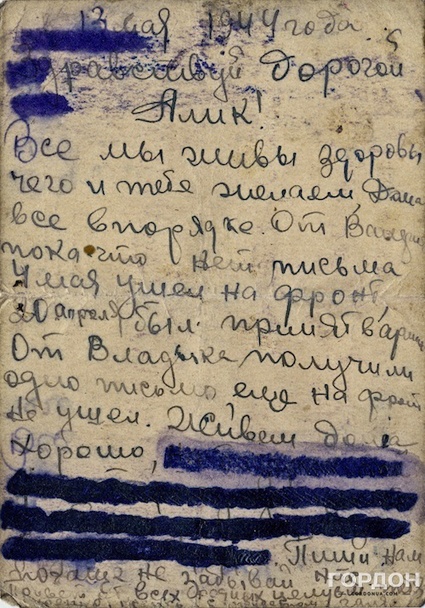 13 мая 1944 года.
Здравствуй дорогой
Алик!
Все мы живы здоровы
чего и тебе желаем, Дома
все в порядке. От
пока что нет письма
4 мая ушел на фронт,
20 апреля был принят
От Владика получили
одно письмо еще на фронт
не ушел. Живем дома
хорошо,
Пиши нам
не забывай
Привет всех родных
ГОРДОН
GORDONUA.COM